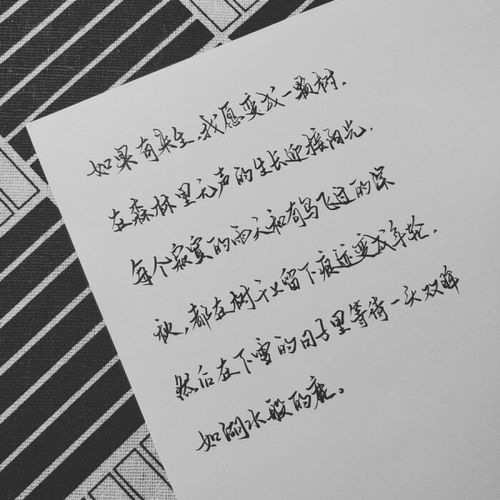 如果有来生,我愿变成一颗树.
在森林里无声的生长迎接阳光.
每个寂寞的雨天和有鸟飞过的深
秋,都在树干上留下痕迹变成年轮.
然后在下雪的日子里等待一头双眸
如湖水般的鹿。